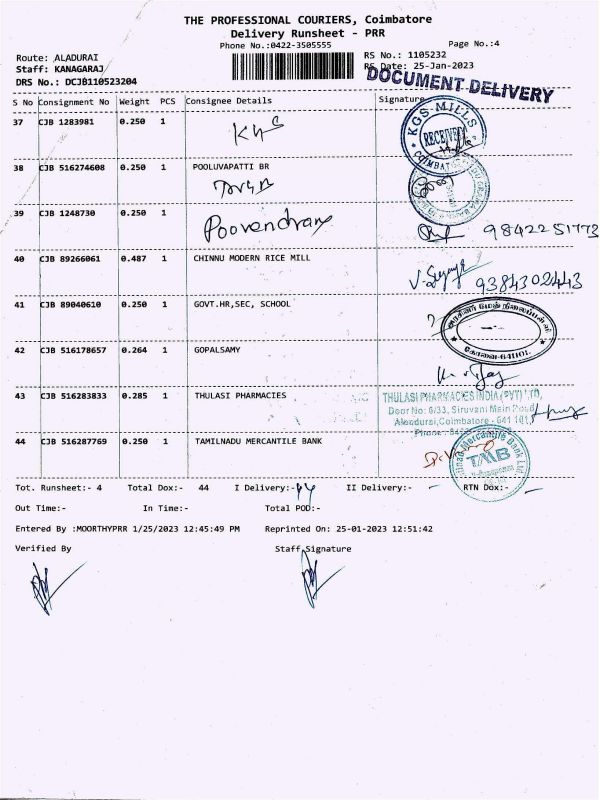 THE PROFESSIONAL COURIERS, Coimbatore
Delivery Runsheet - PRR
Phone No.:0422-3505555
Page No.:4
Route: ALADURAI
RS No.: 1105232
Staff: KANAGARAJ
RS Date: 25-Jan-2023
DRS No.: DCJB110523204
DOCUMENT DELIVERY
S No Consignment No Weight PCS Consignee Details Signature
37 CJB 1283981 0.250 1 KGS
KGS MILLS RECEIVED COIMBATORE
38 CJB 516274608 0.250 1 POOLUVAPATTI BR
39 CJB 1248730 0.250 1 Poovendran
9842251773
40 CJB 89266061 0.487 1 CHINNU MODERN RICE MILL
9384302443
41 CJB 89040610 0.250 1 GOVT.HR,SEC, SCHOOL
அரசினர் மேல் நிலைப்பள்ளி
கோவை-641101.
42 CJB 516178657 0.264 1 GOPALSAMY
43 CJB 516283833 0.285 1 THULASI PHARMACIES
THULASI PHARMACIES INDIA (PVT) LTD,
Door No: 6/33, Siruvani Main Road
Alandurai, Coimbatore - 641 101.
Phone
44 CJB 516287769 0.250 1 TAMILNADU MERCANTILE BANK
Tamilnad Mercantile Bank Ltd
TMB
Tot. Runsheet:- 4 Total Dox:- 44 I Delivery:-44 II Delivery:- - RTN Dox:- -
Out Time:- In Time:- Total POD:-
Entered By :MOORTHYPRR 1/25/2023 12:45:49 PM Reprinted On: 25-01-2023 12:51:42
Verified By Staff Signature